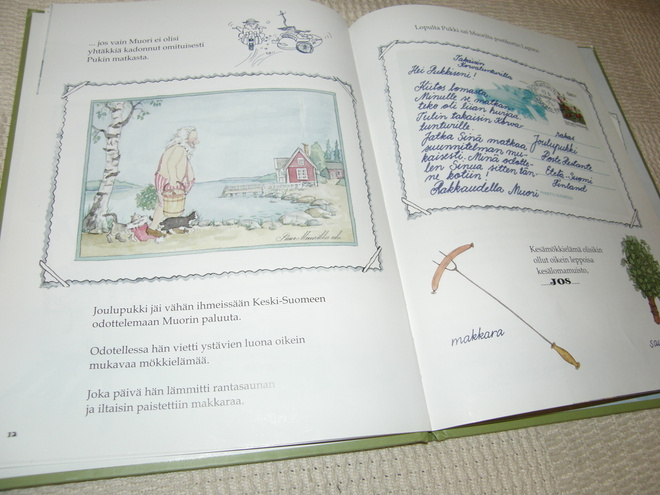 ... jos vain Muori ei olisi
yhtäkkiä kadonnut omituisesti
Pukin matkasta.
Joulupukki jäi vähän ihmeissään Keski-Suomeen
odottelemaan Muorin paluuta.
Odotellessa hän vietti ystävien luona oikein
mukavaa mökkielämää.
Joka päivä hän lämmitti rantasaunan
ja iltaisin paistettiin makkaraa.
12
Lopulta Pukki sai Muorilta postikortin Lapista.
Takaisin
Korvatunturilla
Hei Pukkiseni!
Kiitos lomasta.
Minulle se matkan
teko oli liian hurjaa.
Tulin takaisin Korva
tunturille.
Jatka Sinä matkaa
suunnitelman mu-
kaisesti. Minä odotte-
len Sinua sitten tän-
ne kotiin!
Rakkaudella Muori
Joulupukki
Poste Restante
Etelä-Suomi
Finland
Kesämökkielämä olisikin
ollut oikein leppoisa
kesälomamuisto,
JOS
makkara